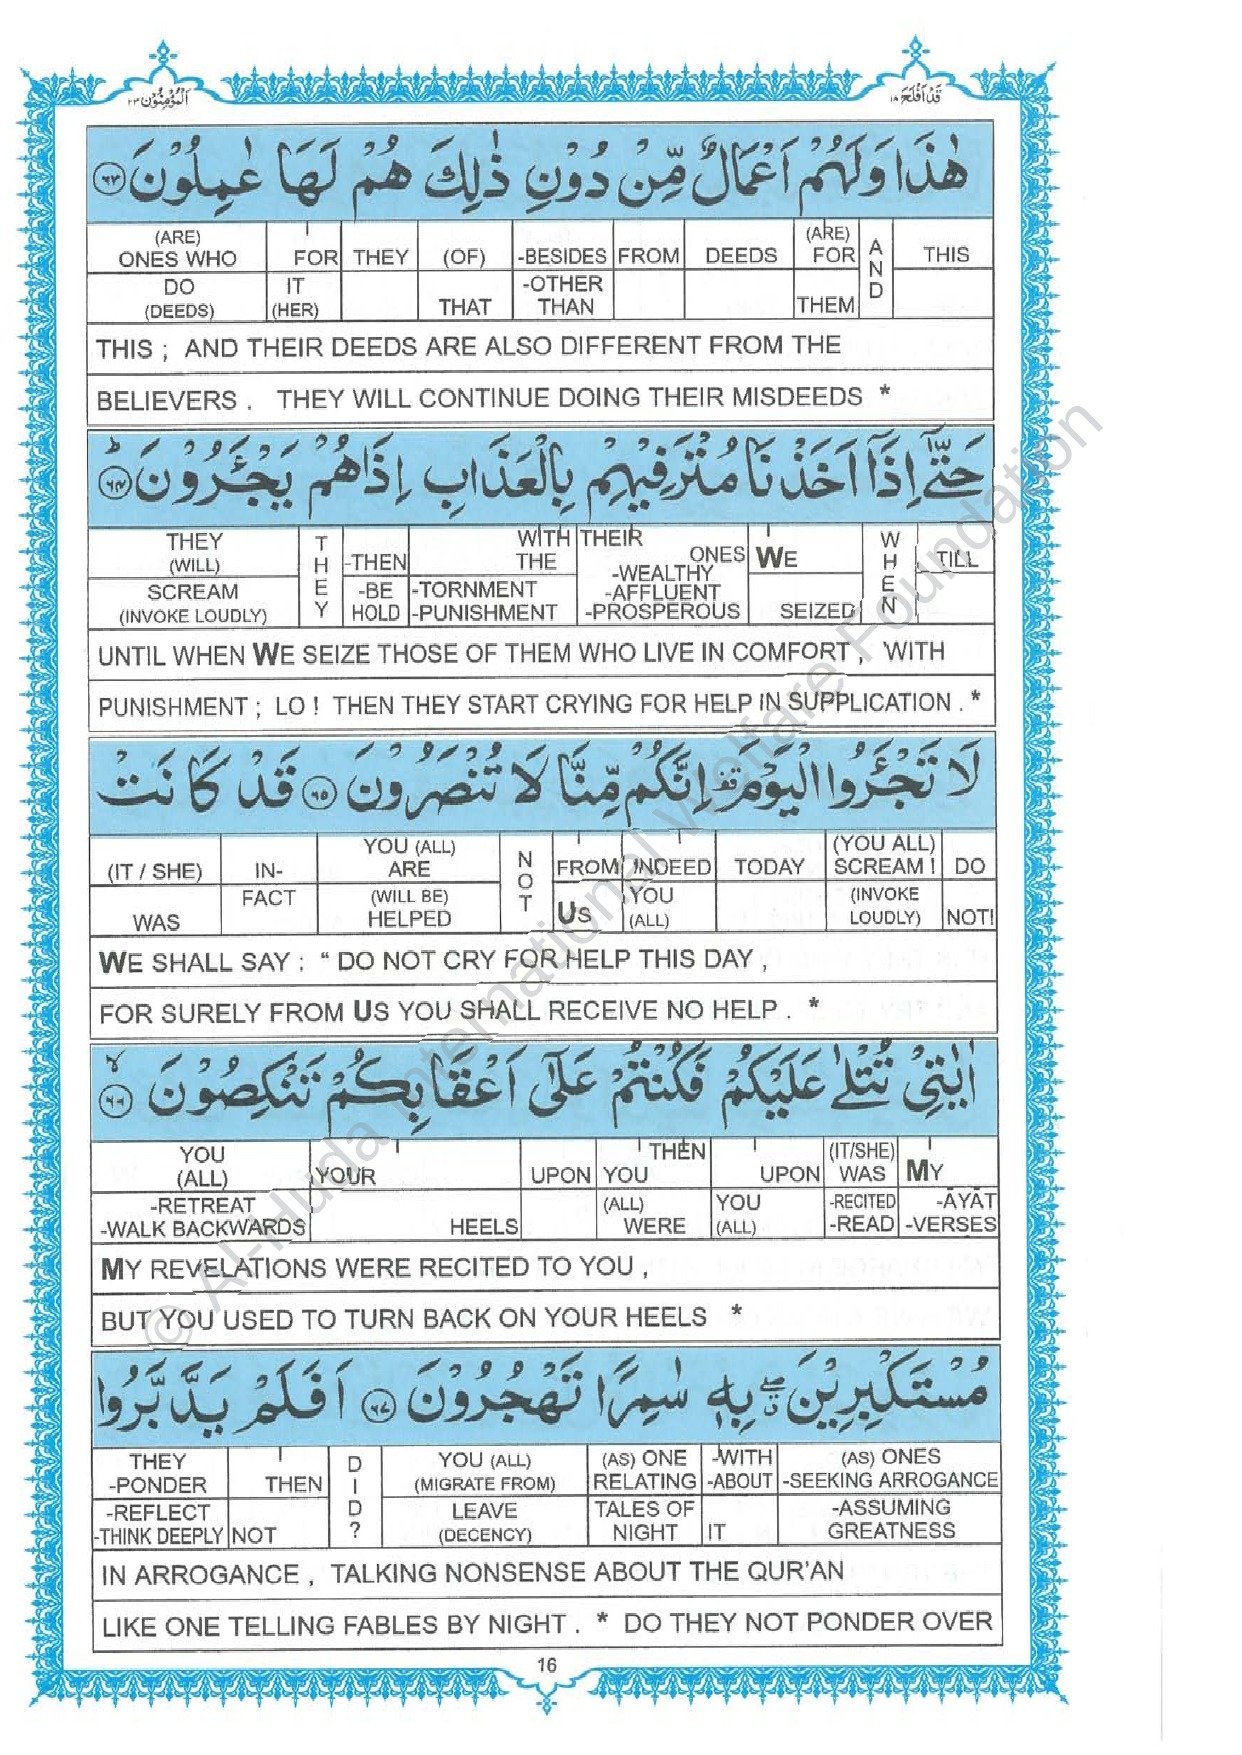 اَلْمُؤْمِنُوْن ٢٣
قَدْ اَفْلَحَ ١٨
هٰذَا وَلَهُمْ اَعْمَالٌ مِّنْ دُوْنِ ذٰلِكَ هُمْ لَهَا عٰمِلُوْنَ ﴿٦٣﴾
(ARE) ONES WHO FOR THEY (OF) -BESIDES FROM DEEDS (ARE) FOR AND THIS
DO (DEEDS) IT (HER) THAT -OTHER THAN THEM
THIS ; AND THEIR DEEDS ARE ALSO DIFFERENT FROM THE
BELIEVERS . THEY WILL CONTINUE DOING THEIR MISDEEDS *
حَتّٰٓى اِذَآ اَخَذْنَا مُتْرَفِيْهِمْ بِالْعَذَابِ اِذَا هُمْ يَجْـَٔرُوْنَ ؕ﴿٦٤﴾
THEY (WILL) THEY -THEN WITH THE THEIR ONES WE WHEN TILL
SCREAM (INVOKE LOUDLY) -BE HOLD -TORNMENT -PUNISHMENT -WEALTHY -AFFLUENT -PROSPEROUS SEIZED
UNTIL WHEN WE SEIZE THOSE OF THEM WHO LIVE IN COMFORT , WITH
PUNISHMENT ; LO ! THEN THEY START CRYING FOR HELP IN SUPPLICATION . *
لَا تَجْـَٔرُوا الْيَوْمَ قف اِنَّكُمْ مِّنَّا لَا تُنْصَرُوْنَ ﴿٦٥﴾ قَدْ كَانَتْ
(IT / SHE) IN- YOU (ALL) ARE NOT FROM INDEED TODAY (YOU ALL) SCREAM ! DO
WAS FACT (WILL BE) HELPED US YOU (ALL) (INVOKE LOUDLY) NOT!
WE SHALL SAY : “ DO NOT CRY FOR HELP THIS DAY ,
FOR SURELY FROM US YOU SHALL RECEIVE NO HELP . *
اٰيٰتِيْ تُتْلٰى عَلَيْكُمْ فَكُنْتُمْ عَلٰٓى اَعْقَابِكُمْ تَنْكِصُوْنَ ۙ﴿٦٦﴾
YOU (ALL) YOUR UPON YOU THEN UPON (IT/SHE) WAS MY
-RETREAT -WALK BACKWARDS HEELS (ALL) WERE YOU (ALL) -RECITED -READ -ĀYĀT -VERSES
MY REVELATIONS WERE RECITED TO YOU ,
BUT YOU USED TO TURN BACK ON YOUR HEELS *
مُسْتَكْبِرِيْنَ ۖق بِهٖ سٰمِرًا تَهْجُرُوْنَ ﴿٦٧﴾ اَفَلَمْ يَدَّبَّرُوا
THEY -PONDER THEN DID? YOU (ALL) (MIGRATE FROM) (AS) ONE RELATING -WITH -ABOUT (AS) ONES -SEEKING ARROGANCE
-REFLECT -THINK DEEPLY NOT LEAVE (DECENCY) TALES OF NIGHT IT -ASSUMING GREATNESS
IN ARROGANCE , TALKING NONSENSE ABOUT THE QUR'AN
LIKE ONE TELLING FABLES BY NIGHT . * DO THEY NOT PONDER OVER
16
© Al-Huda International Welfare Foundation